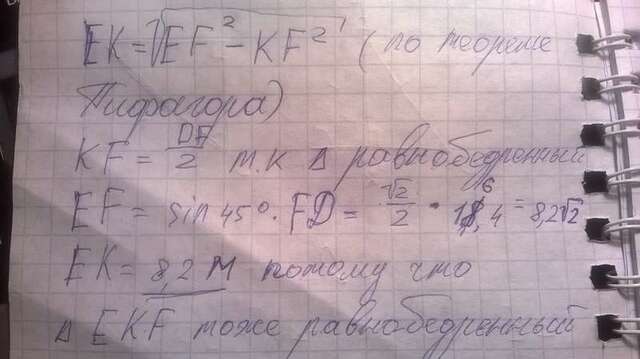 EK=√EF²-KF² (по теореме
Пифагора)
KF = DF/2 т.к Δ равнобедренный
EF = sin 45°·FD = √2/2 · 16,4 = 8,2√2
EK = 8,2 м потому что
Δ EKF тоже равнобедренный